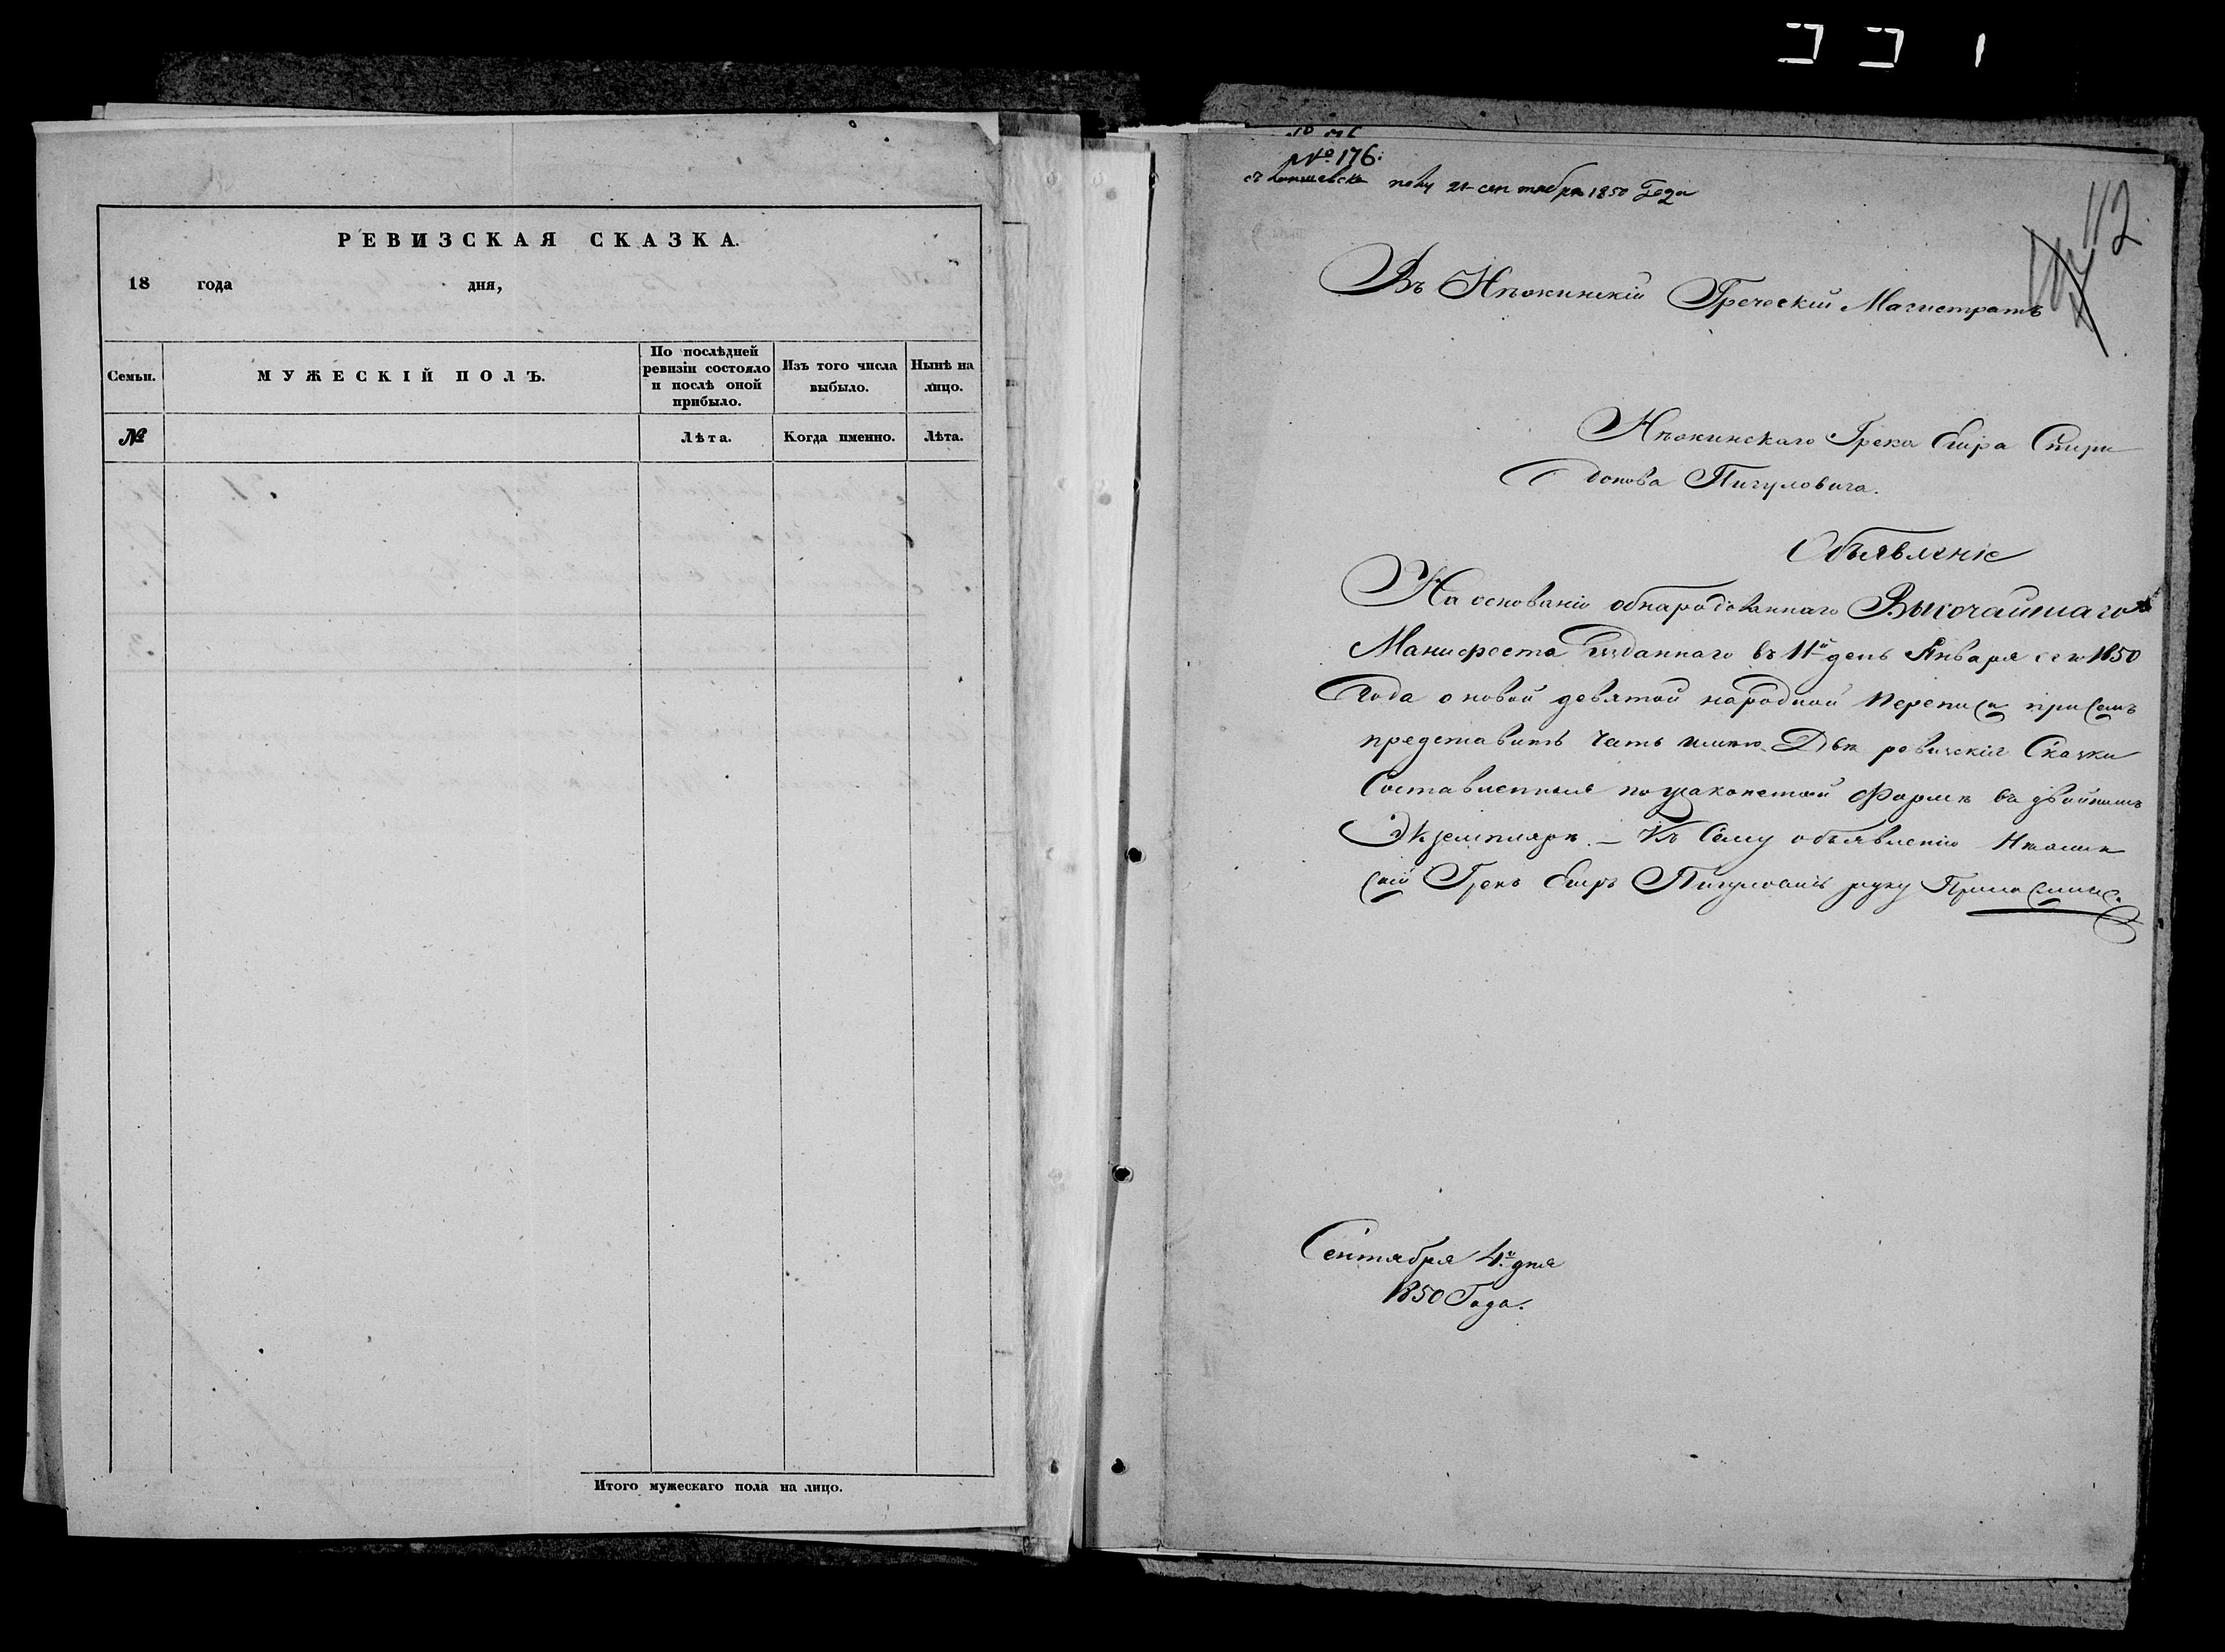 РЕВИЗСКАЯ СКАЗКА.
18 года дня,
Семьи.
МУЖЕСКІЙ ПОЛЪ.
По послѣдней
ревизіи состояло
и послѣ оной
прибыло.
Изъ того числа
выбыло.
Нынѣ на
лицо.
№
Лѣта.
Когда именно.
Лѣта.
Итого мужескаго пола на лицо.
№ 176.
21 сентября 1850 Года
112
Въ Нѣжинскій Греческій Магистратъ
Нѣжинскаго Грека Спири
донова Пичуловича.
Объявленіе
На основаніи обнародованнаго Высочайшаго
Манифеста изданнаго въ 11й день Января сего 1850
Года о новой девятой народной переписи при семъ
представить честь имѣю Двѣ ревизскія Сказки
Составленныя по узаконенной Формѣ въ двойномъ
Экземплярѣ. — Къ Сему объявленію Нѣжин
скій Грекъ Пичуловичъ руку Приложилъ.
Сентября 4го дня
1850 Года.